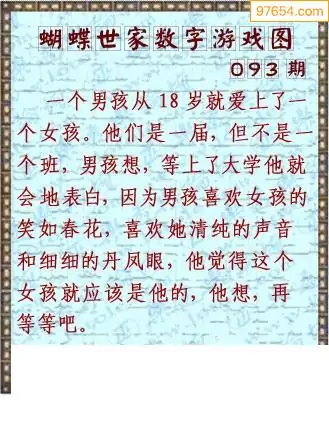 97654.com
蝴蝶世家数字游戏图
093期
一个男孩从18岁就爱上了一
个女孩。他们是一届,但不是一
个班,男孩想,等上了大学他就
会地表白,因为男孩喜欢女孩的
笑如春花,喜欢她清纯的声音
和细细的丹凤眼,他觉得这个
女孩就应该是他的,他想,再
等等吧。